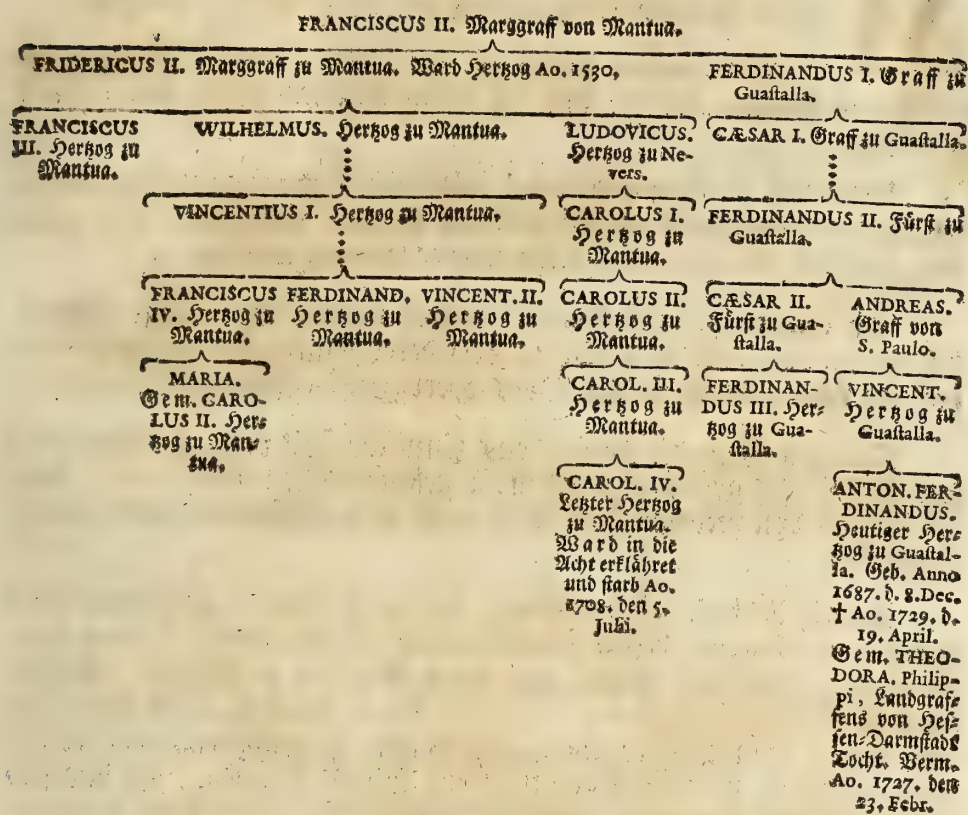 FRANCISCUS II. Marggraff von Mantua.
FRIDERICUS II. Marggraff zu Mantua. Ward Hertzog Ao. 1530.
FERDINANDUS I. Graff zu
Guastalla.
FRANCISCUS
III. Hertzog zu
Mantua.
WILHELMUS. Hertzog zu Mantua.
LUDOVICUS.
Hertzog zu Ne-
vers.
CÆSAR I. Graff zu Guastalla.
VINCENTIUS I. Hertzog zu Mantua.
CAROLUS I.
Hertzog zu
Mantua.
FERDINANDUS II. Fürst zu
Guastalla.
FRANCISCUS
IV. Hertzog zu
Mantua.
FERDINAND.
Hertzog zu
Mantua.
VINCENT. II.
Hertzog zu
Mantua.
CAROLUS II.
Hertzog zu
Mantua.
CÆSAR II.
Fürst zu Gua-
stalla.
ANDREAS.
Graff von
S. Paulo.
MARIA.
Gem. CARO-
LUS II. Her-
tzog zu Man-
tua.
CAROL. III.
Hertzog zu
Mantua.
FERDINAN-
DUS III. Her-
tzog zu Gua-
stalla.
VINCENT.
Hertzog zu
Guastalla.
CAROL. IV.
Letzter Hertzog
zu Mantua.
Ward in die
Acht erklähret
und starb Ao.
1708. den 5.
Juli.
ANTON. FER-
DINANDUS.
Heutiger Her-
tzog zu Guastal-
la. Geb. Anno
1687. d. 8. Dec.
† Ao. 1729. d.
19. April.
Gem. THEO-
DORA. Philip-
pi, Landgraf-
fens von Hes-
sen-Darmstadt
Tocht. Verm.
Ao. 1727. den
23. Febr.